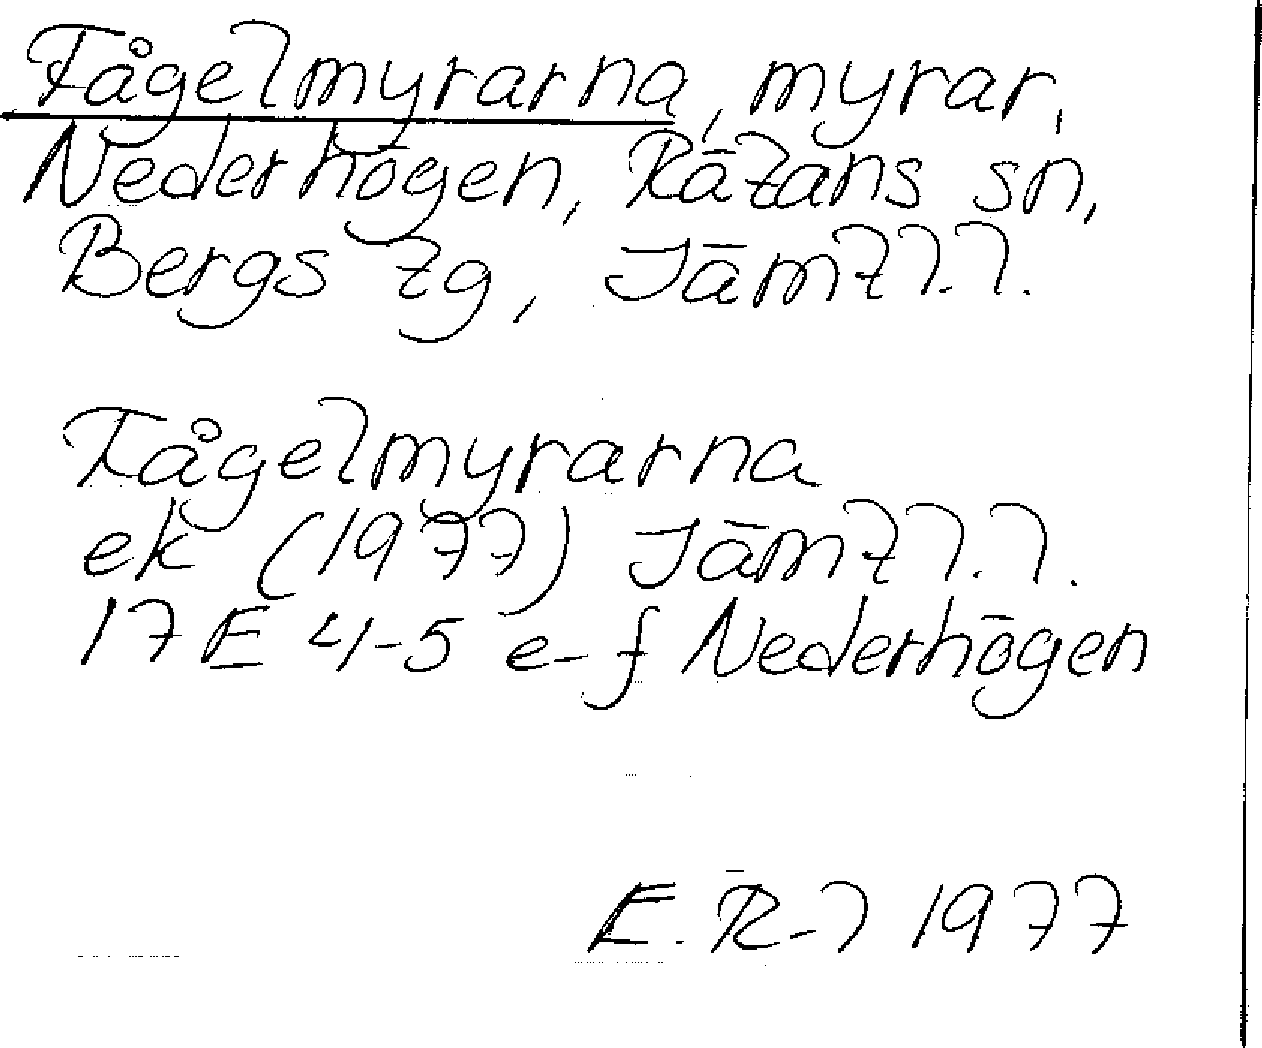 Fågelmyrarna, myrar,
Nederhögen, Rätans sn,
Bergs tg, Jämtl.l.
Fågelmyrarna
ek (1977) Jämtl.l.
17E 4-5 e-f Nederhögen
E.R-l 1977